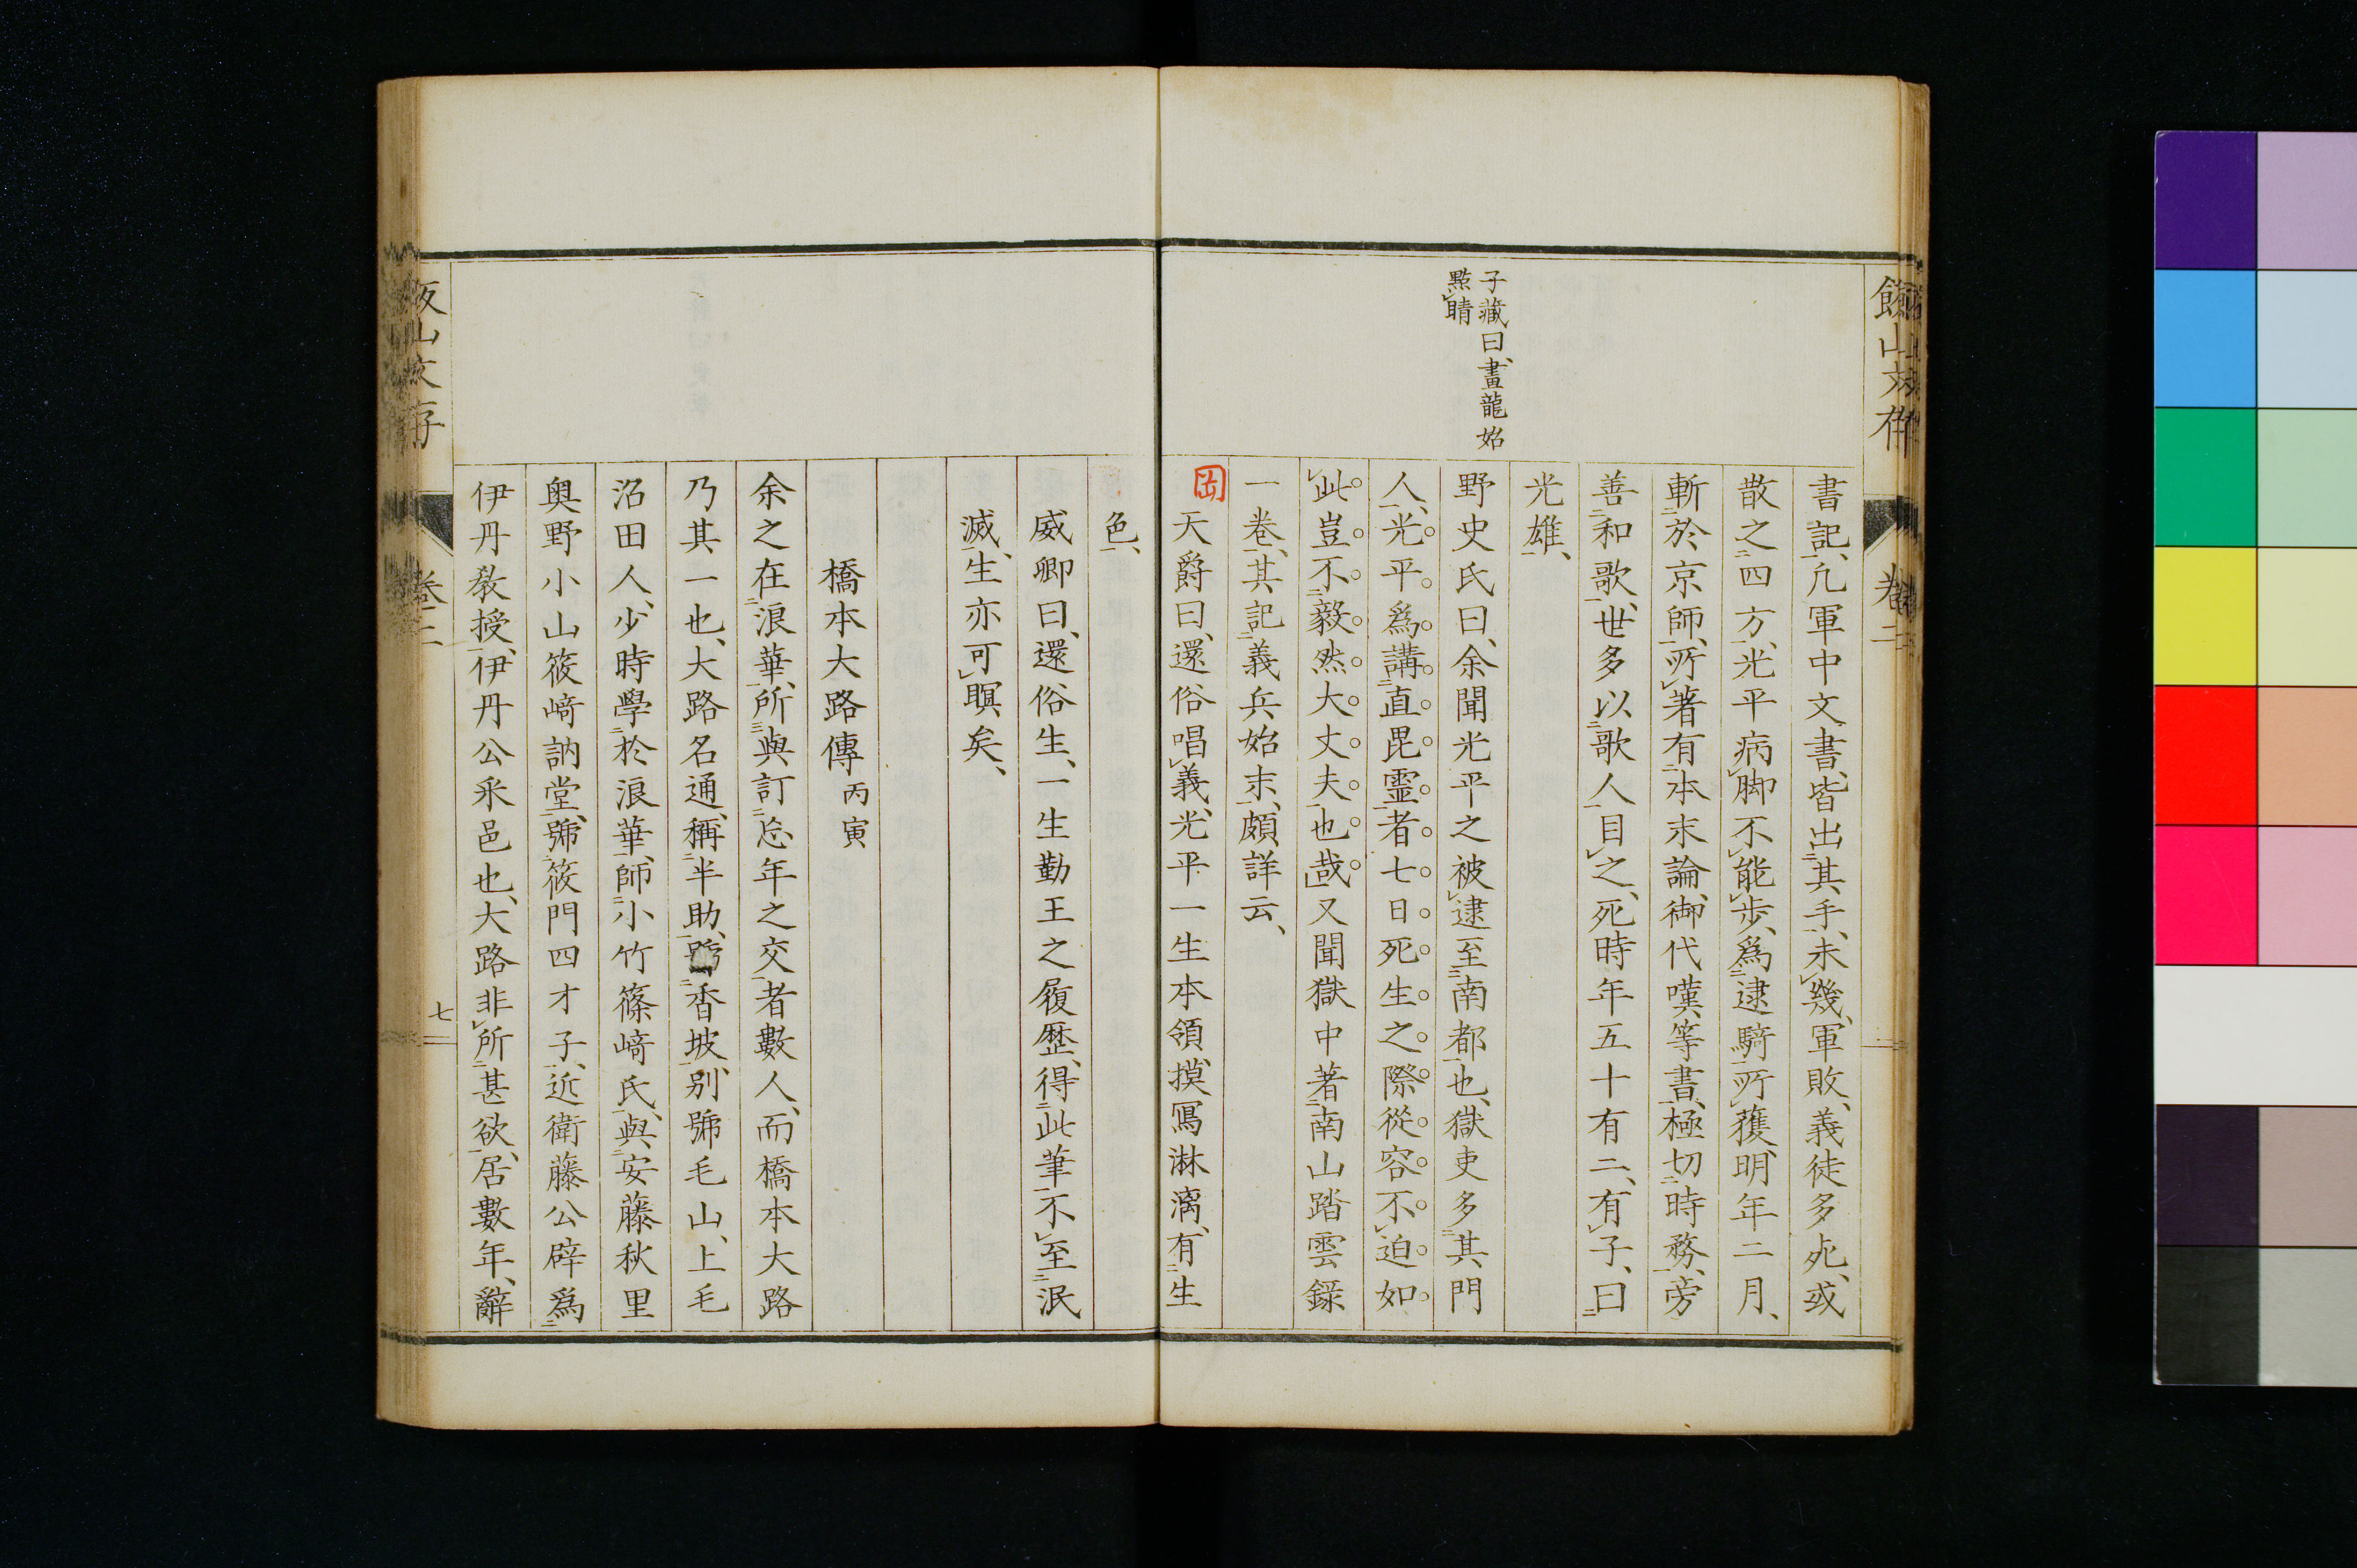 書記、凡軍中文書、皆出其手、未幾、軍敗、義徒多死、或
散之四方、光平病脚不能歩、爲逮騎所獲、明年二月、
斬於京師、所著有本末論、御代嘆等書、極切時務、旁
善和歌、世多以歌人目之、死時年五十有二、有子、曰
光雄、
子藏曰、畫龍始
點睛
野史氏曰、余聞光平之被逮至南都也、獄吏多其門
人、光平爲講直毘靈者七日死生之際從容不迫如
此豈不毅然大丈夫也哉又聞獄中著南山踏雲錄
一卷、其記義兵始末、頗詳云、
天爵曰、還俗唱義、光平一生本領、摸寫淋漓、有生
色、
威卿曰、還俗生、一生勤王之履歷、得此筆不至泯
滅、生亦可瞑矣、
橋本大路傳 丙寅
余之在浪華、所與訂忘年之交者數人、而橋本大路
乃其一也、大路名通、稱半助、號香坡、別號毛山、上毛
沼田人、少時學於浪華、師小竹篠﨑氏、與安藤秋里
奧野小山筱﨑訥堂、號筱門四才子、近衛藤公辟爲
伊丹教授、伊丹公采邑也、大路非所甚欲、居數年、辭
卷二
七